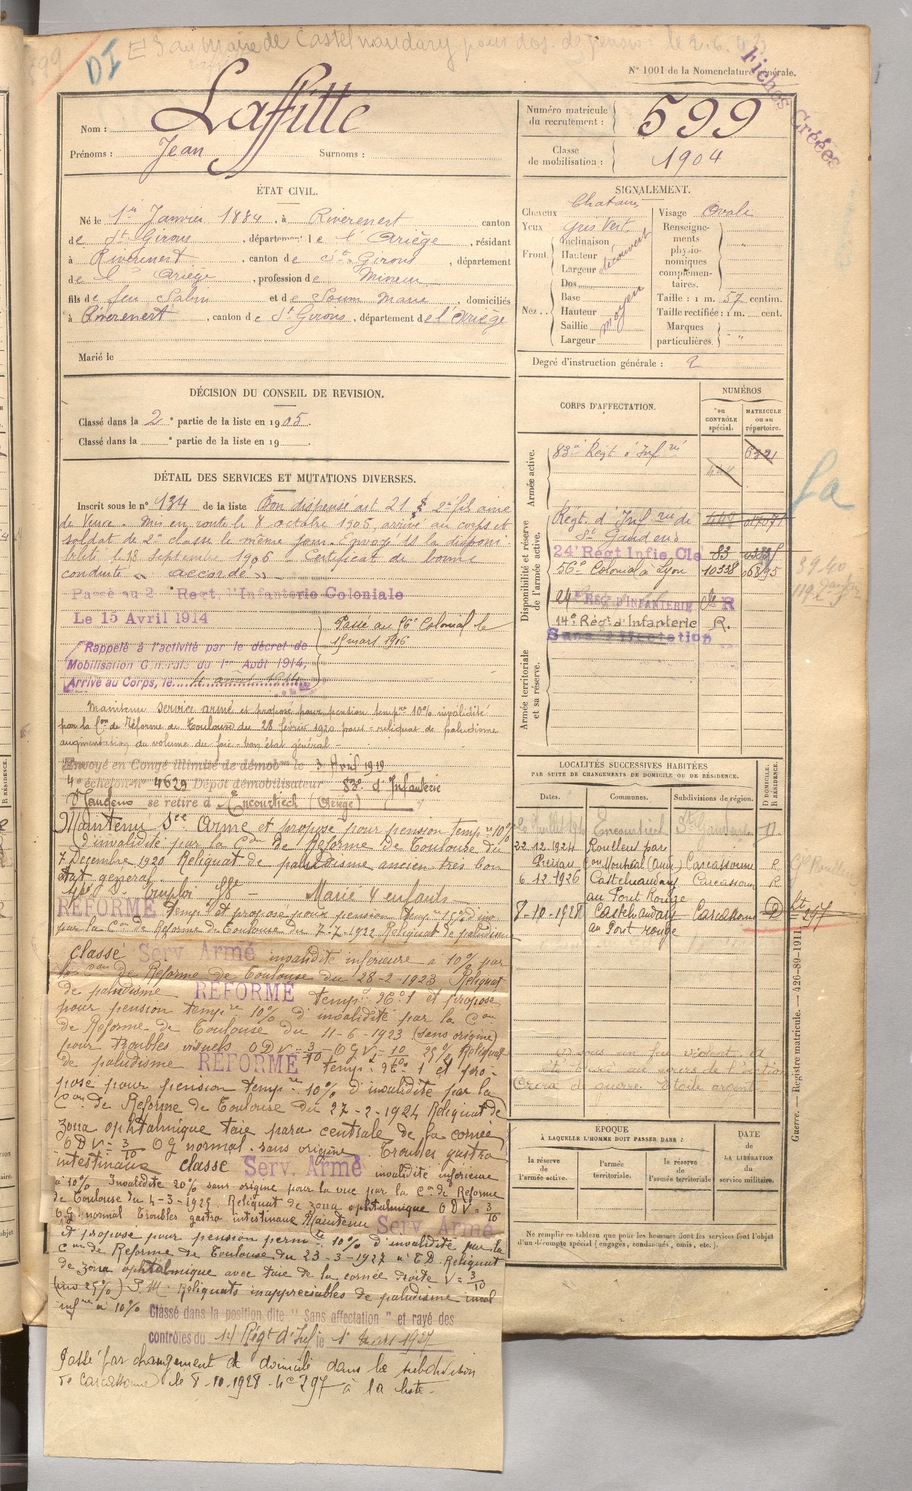 799
DI
au Maire de Castelnaudary pour dos. de pension le 2.6.43
N° 1001 de la Nomenclature générale.
Fiches Créées
Nom : Laffitte
Prénoms : Jean Surnoms :
Numéro matricule du recrutement : 599
Classe de mobilisation : 1904
ÉTAT CIVIL.
Né le 1er Janvier 1884, à Riverenert canton
de St Girons, département de l'Ariège, résidant
à Riverenert, canton de St Girons, département
de l'Ariège, profession de Mineur
fils de feu Salin et de Soum Marie, domiciliés
à Riverenert, canton de St Girons, département de l'Ariège
Marié le
SIGNALEMENT.
Cheveux Chatains
Yeux gris vert
Front. Inclinaison
Hauteur
Largeur découvert
Nez. Dos
Base
Hauteur moyen
Saillie
Largeur
Visage Ovale
Renseignements physionomiques complémentaires.
Taille : 1 m. 57 centim.
Taille rectifiée : 1 m. cent.
Marques particulières.
Degré d'instruction générale : 2
DÉCISION DU CONSEIL DE REVISION.
Classé dans la 2e partie de la liste en 1905.
Classé dans la e partie de la liste en 19 .
DÉTAIL DES SERVICES ET MUTATIONS DIVERSES.
Inscrit sous le n° 134 de la liste Bon dispensé art 21 § 2e fils ainé
de Veuve. Mis en route le 8 octobre 1905, arrivé au corps et
soldat de 2e classe le même jour. Envoyé ds la disponi
bilité le 18 Septembre 1906. Certificat de bonne
conduite " accordé "
Passé au 2e Régt. d'Infanterie Coloniale
Le 15 Avril 1914
Passé au 56e Colonial le
15 mars 1916
Rappelé à l'activité par le décret de
Mobilisation Générale du 1er Août 1914,
Arrivé au Corps, le 4 août 1914
Maintenu service armé et proposé pour pension tempre 10% invalidité
par la Con de Réforme de Toulouse du 28 février 1920 pour reliquat de paludisme
augmentation du volume du foie - bon état général -
Envoyé en Congé illimité de démobon le 3 Avril 1919
4e échelon n° 4629 Dépôt démobilisateur 83e d'Infanterie
St Gaudens se retire à Encourtiech (Ariège)
Maintenu Sce Armé et proposé pour pension tempre 10%
d'invalidité par la Con de Réforme de Toulouse du
7 Décembre 1920 Reliquat de paludisme ancien très bon
état général
Marié 4 enfants
RÉFORMÉ Tempre et proposé pour pension tempre
par la Con de Réforme de Toulouse du 7-7-1922 Reliquat de paludisme
classé Serv. Armé invalidité inférieure à 10% par
la Con de Réforme de Toulouse du 28-2-1923 Reliquat
de paludisme RÉFORMÉ tempre n°1 et proposé
pour pension tempre 10% d'invalidité par la Con
de Réforme de Toulouse du 11-6-1923 (sans origine)
pour troubles visuels ODV = 3/10 OGV = 10/10 25% Reliquat
de paludisme RÉFORMÉ tempre n° 1 et pro-
posé pour pension tempre 10% d'invalidité par la
Con de Réforme de Toulouse du 27-2-1924 Reliquat de
zona ophtalmique taie para centrale de la cornée
ODV = 3/10 OG normal. sans origine. Troubles gastro
intestinaux classé Serv. Armé invalidité inférieure
à 10% Invalidité 20% sans origine pour la vue par la Con de Réforme
de Toulouse du 4-3-1925. Reliquat de zona ophtalmique ODV = 3/10
OG normal Troubles gastro intestinaux Maintenu Serv. Armé
et proposé pour pension permte 10% d'invalidité par la
Con de Réforme de Toulouse du 23-3-1927 Reliquat
de zona ophtalmique avec taie de la cornée droite V = 3/10
Reliquats inappréciables de paludisme inval
infre à 10%
Classé dans la position dite " Sans affectation " et rayé des
contrôles du 14 Régt d'Inf le 1er mars 1927
Passé par changement de domicile dans la subdivision
de Carcassonne le 8-10-1928 - n° 297 à la liste
CORPS D'AFFECTATION.
NUMÉROS
au CONTRÔLE spécial.
MATRICULE ou au répertoire.
Armée active.
83e Régt d'Infrie
Disponibilité et réserve de l'armée active.
Régt. d'Infrie de
St Gaudens
24e Régt Infie Cle 83
56e Colonial à Lyon 10328 06895
24e REGt D'INFANTERIE R
14e Régt d'Infanterie R.
Sans affectation
Armée territoriale et sa réserve.
La
LOCALITÉS SUCCESSIVES HABITÉES
PAR SUITE DE CHANGEMENTS DE DOMICILE OU DE RÉSIDENCE.
Dates. Communes. Subdivisions de région. D DOMICILE. R RÉSIDENCE.
Encourtiech St Gaudens D.
22.12.1924 Roullens par
Montréal (Aude) Carcassonne R
6.12.1926 Castelnaudary Carcassonne R
au Pont Rouge
8-10-1928 Castelnaudary Carcassonne D
au Pont rouge
297
sous un feu violent
Croix de guerre Etoile argent
ÉPOQUE
À LAQUELLE L'HOMME DOIT PASSER DANS :
la réserve de l'armée active.
l'armée territoriale
la réserve de l'armée territoriale
DATE de LA LIBÉRATION du service militaire.
Ne remplir ce tableau que pour les hommes dont les services font l'objet
d'un décompte spécial (engagés, condamnés, omis, etc.).
Guerre. — Registre matricule. — 426-89-1911.